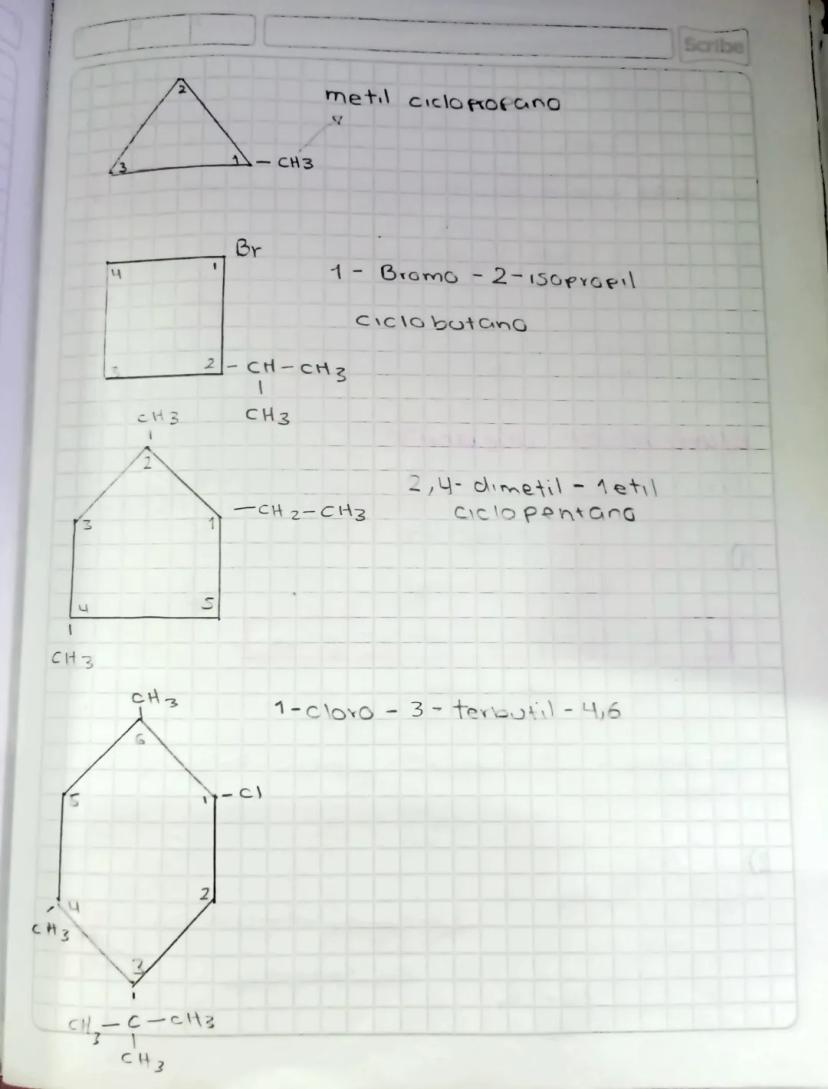 Scribe
2
metil ciclopropano
3
1 - CH3
Br
4
1
1 - Bromo - 2 - isopropil
ciclobutano
3
2 - CH - CH3
CH3
CH3
2
2,4- dimetil - 1etil
ciclopentano
3
1
- CH2 - CH3
4
5
CH3
CH3
1-cloro - 3 - terbutil - 4,6
6
5
1 - Cl
4
2
CH3
3
CH3 - C - CH3
CH3